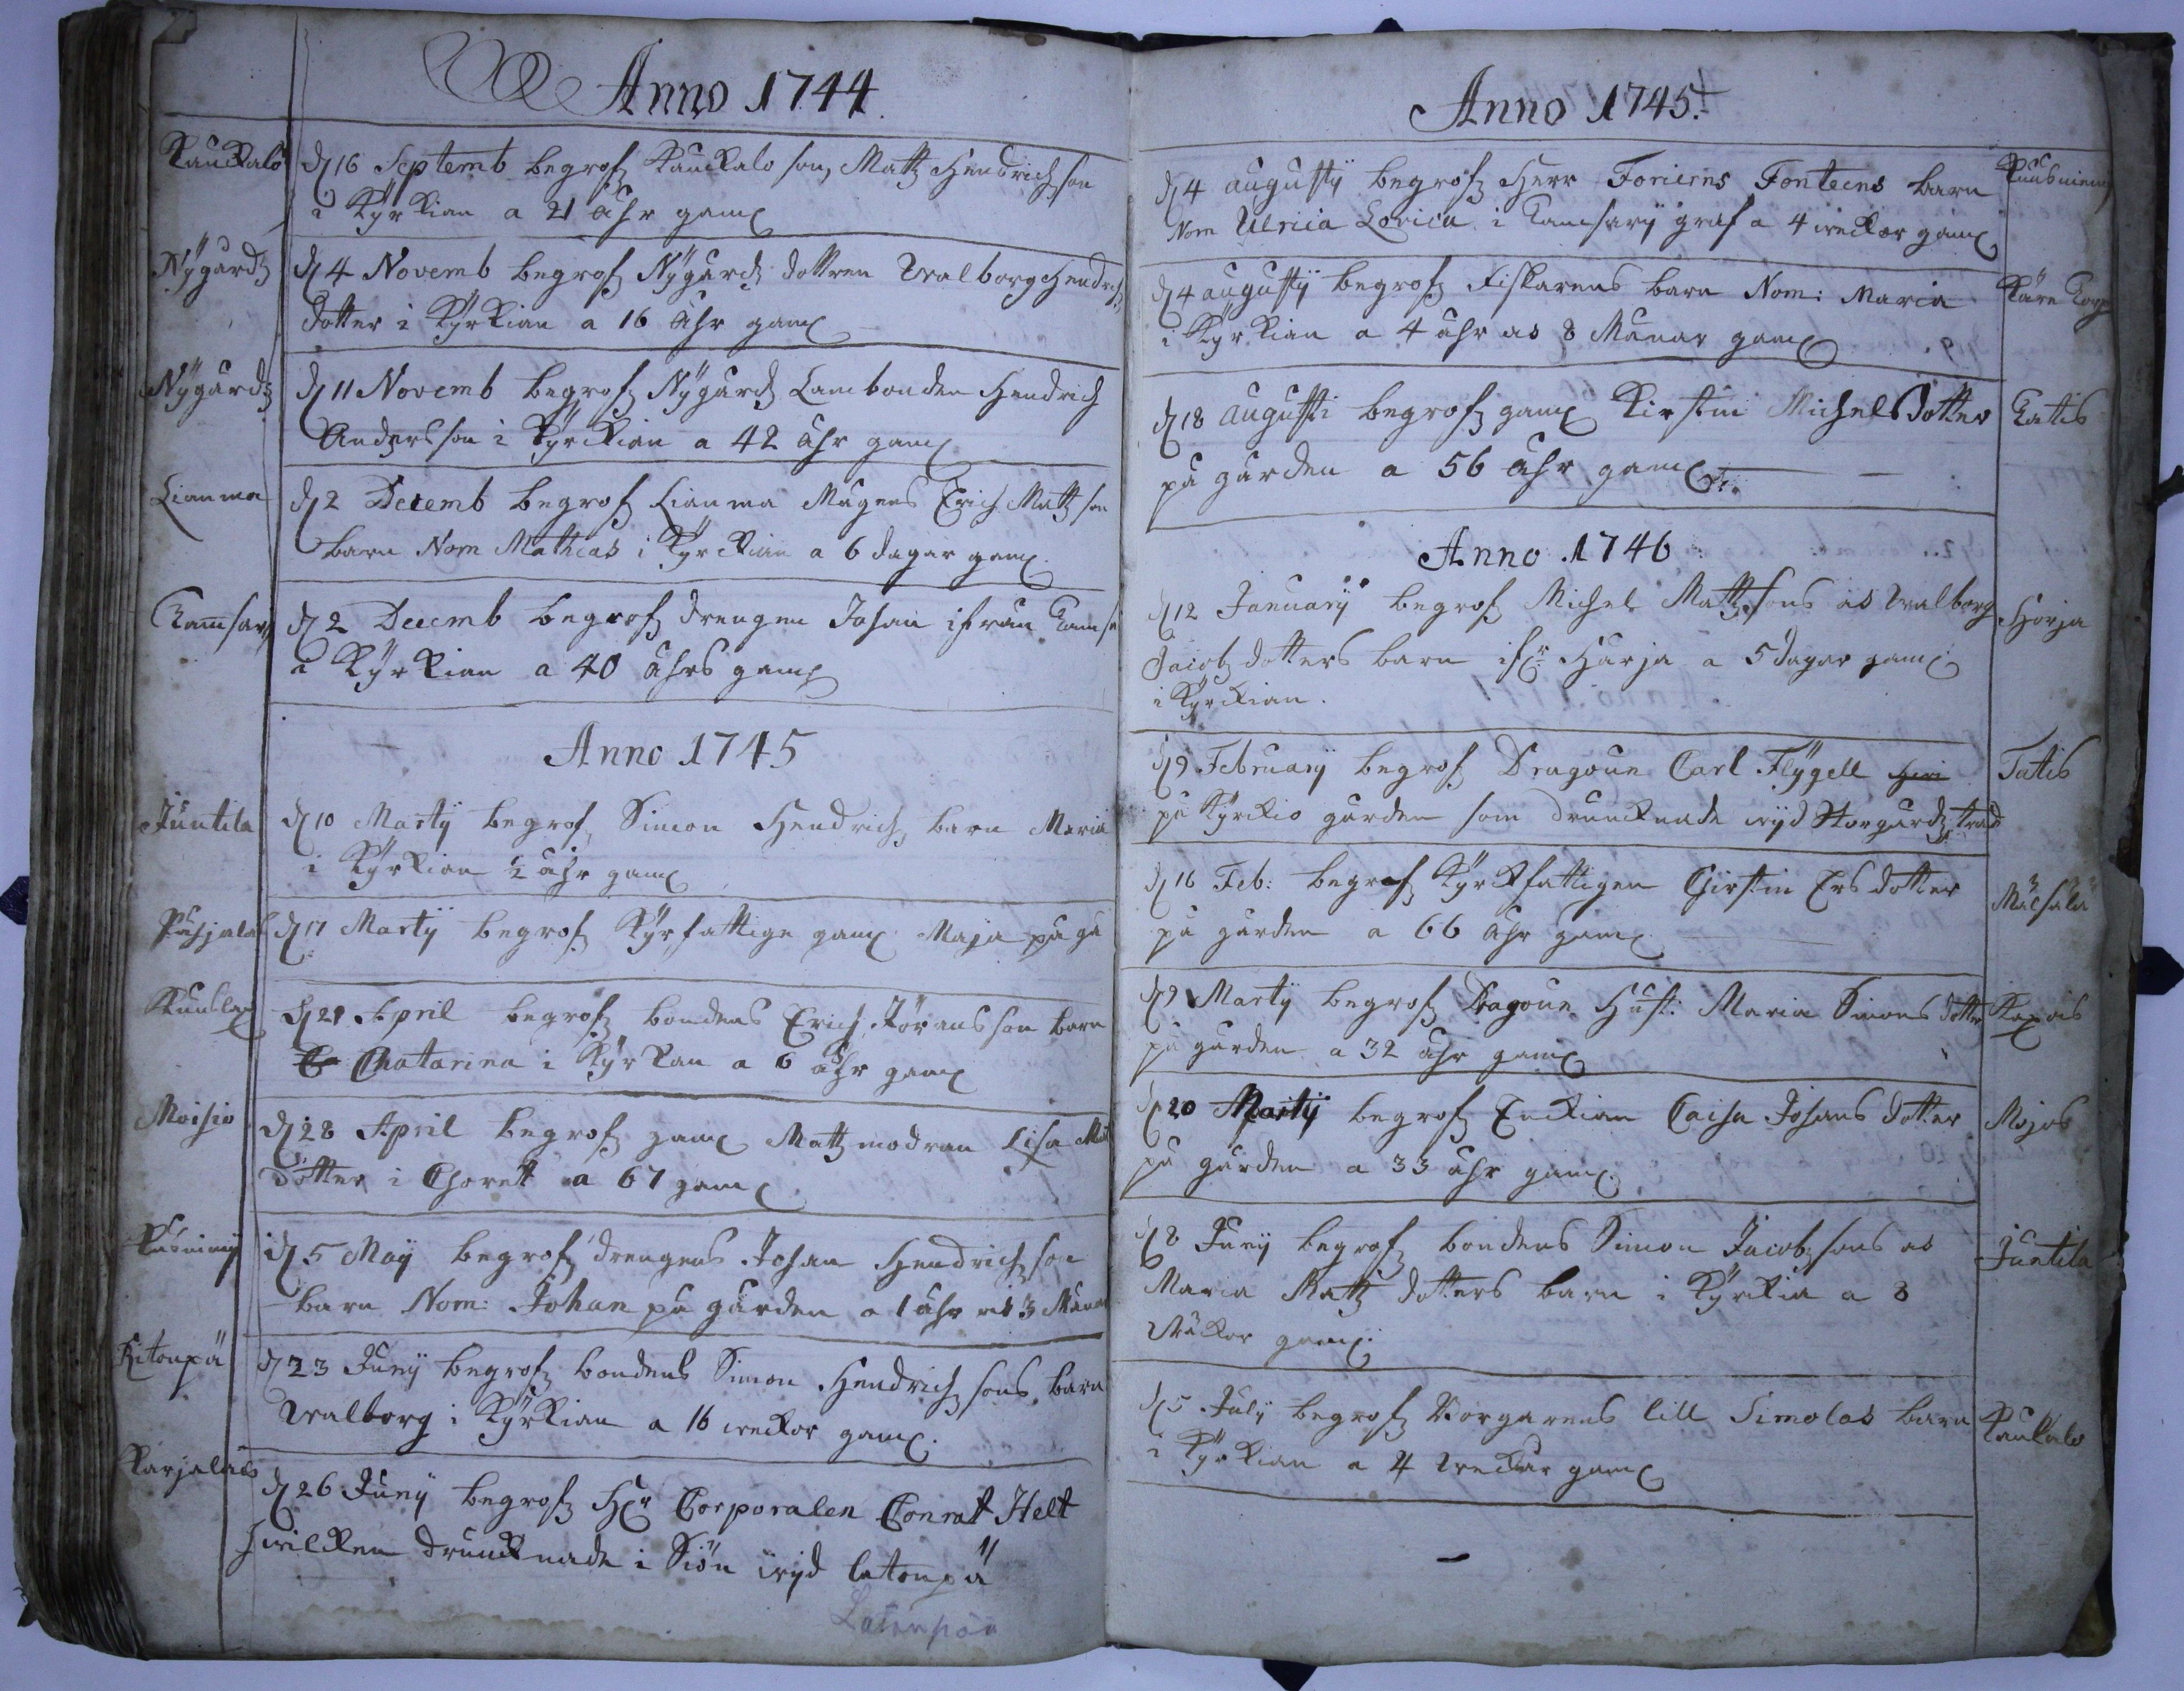 Anno 1744.
Kauckalo d 16 Septemb begrofz Kauckalo son, Mattz Hendrichson
i Kÿrkian a 21 åhr gaml
Nÿgårdz d 4 Novemb begrofz Nÿgårdz dottren Walborg Hendrichz
dotter i Kÿrkian a 16 åhr gaml
Nÿgårdz d 11 Novemb begrofz Nÿgårdz Lambonden Hendrich
Andersson i Kÿrckian a 42 åhr gaml
Lianma d 2 Decemb begrofz Lianma Mågens Erich Mattzson
barn Nom Mathias i Kÿrckian a 6 dagar gaml.
d 2 Decemb begrofz drengen Johan ifrån
i Kÿrkian a 40 åhrs gaml
Anno 1745
Juntila d 10 Martÿ begrofz Simon Hendrichz barn Maria
i Kÿrkian ½ åhr gaml
d 17 Martÿ begrofz Kÿrfattige gaml Maja på gå
d 21 April begrofz bondens Erich Jöransson barn
Chatarina i Kÿrkan a 6 åhr gaml
Moisio d 28 April begrofz gaml Mattz modran Lisa
dotter i Choret a 67 gaml
d 5 Maÿ begrofz drengens Johan Hendrichson
barn Nom: Johan på gården a 1 åhr as 3 Måna
Kitonpä d 23 Junÿ begrofz bondens Simon Hendrichsons barn
Walborg i Kÿrkian a 16 weckor gaml.
Karjalais d 26 Junÿ begrofz Hr Corporalen Conrat Helt
hwilcken drunknade i Siön wijd latonpä
Latonpää
Anno 1745.
d 4 augustÿ begrofz Herr Forierns Fonteens barn
Nom Ulricia Lovica i graf a 4 weckor gaml
d 4 augustÿ begrofz Fiskarens barn Nom: Maria
i Kÿrkian a 4 åhr as 8 Månar gaml
d 18 augusti begrofz gaml Kirstin Michelsdotter Tatis
på gården a 56 åhr gaml
Anno 1746
d 12 Januarÿ begrofz Michel Mattzsons as Walborg Horja
Jacobz dotters barn ifr Harja a 5 dagar gaml
i Kÿrckian.
d 9 Februarÿ begrofz Dragoun Carl Flÿgell Tatis
på Kÿrckio gården som drunknade wijd Storgårdz
d 16 Feb: begrofz Kÿrkfattigen Chirstin Ersdotter
på gården a 66 åhr gaml
d 9 Martÿ begrofz Dragoun Hust: Maria Simons dotter
på gården a 32 åhr gaml
d 20 Martÿ begrofz Enckian Caisa Johans dotter Mojos
på gården a 33 åhr gaml.
d 8 Junÿ begrofz bondens Simon Jacobzsons as Juntila
Maria Mattz dotters barn i Kÿrckia a 8
Wäckor gaml.
d 5 Julÿ begrofz Borgarens lill Simolas barn Kaukalo
i Kÿrkian a 4 weckor gaml